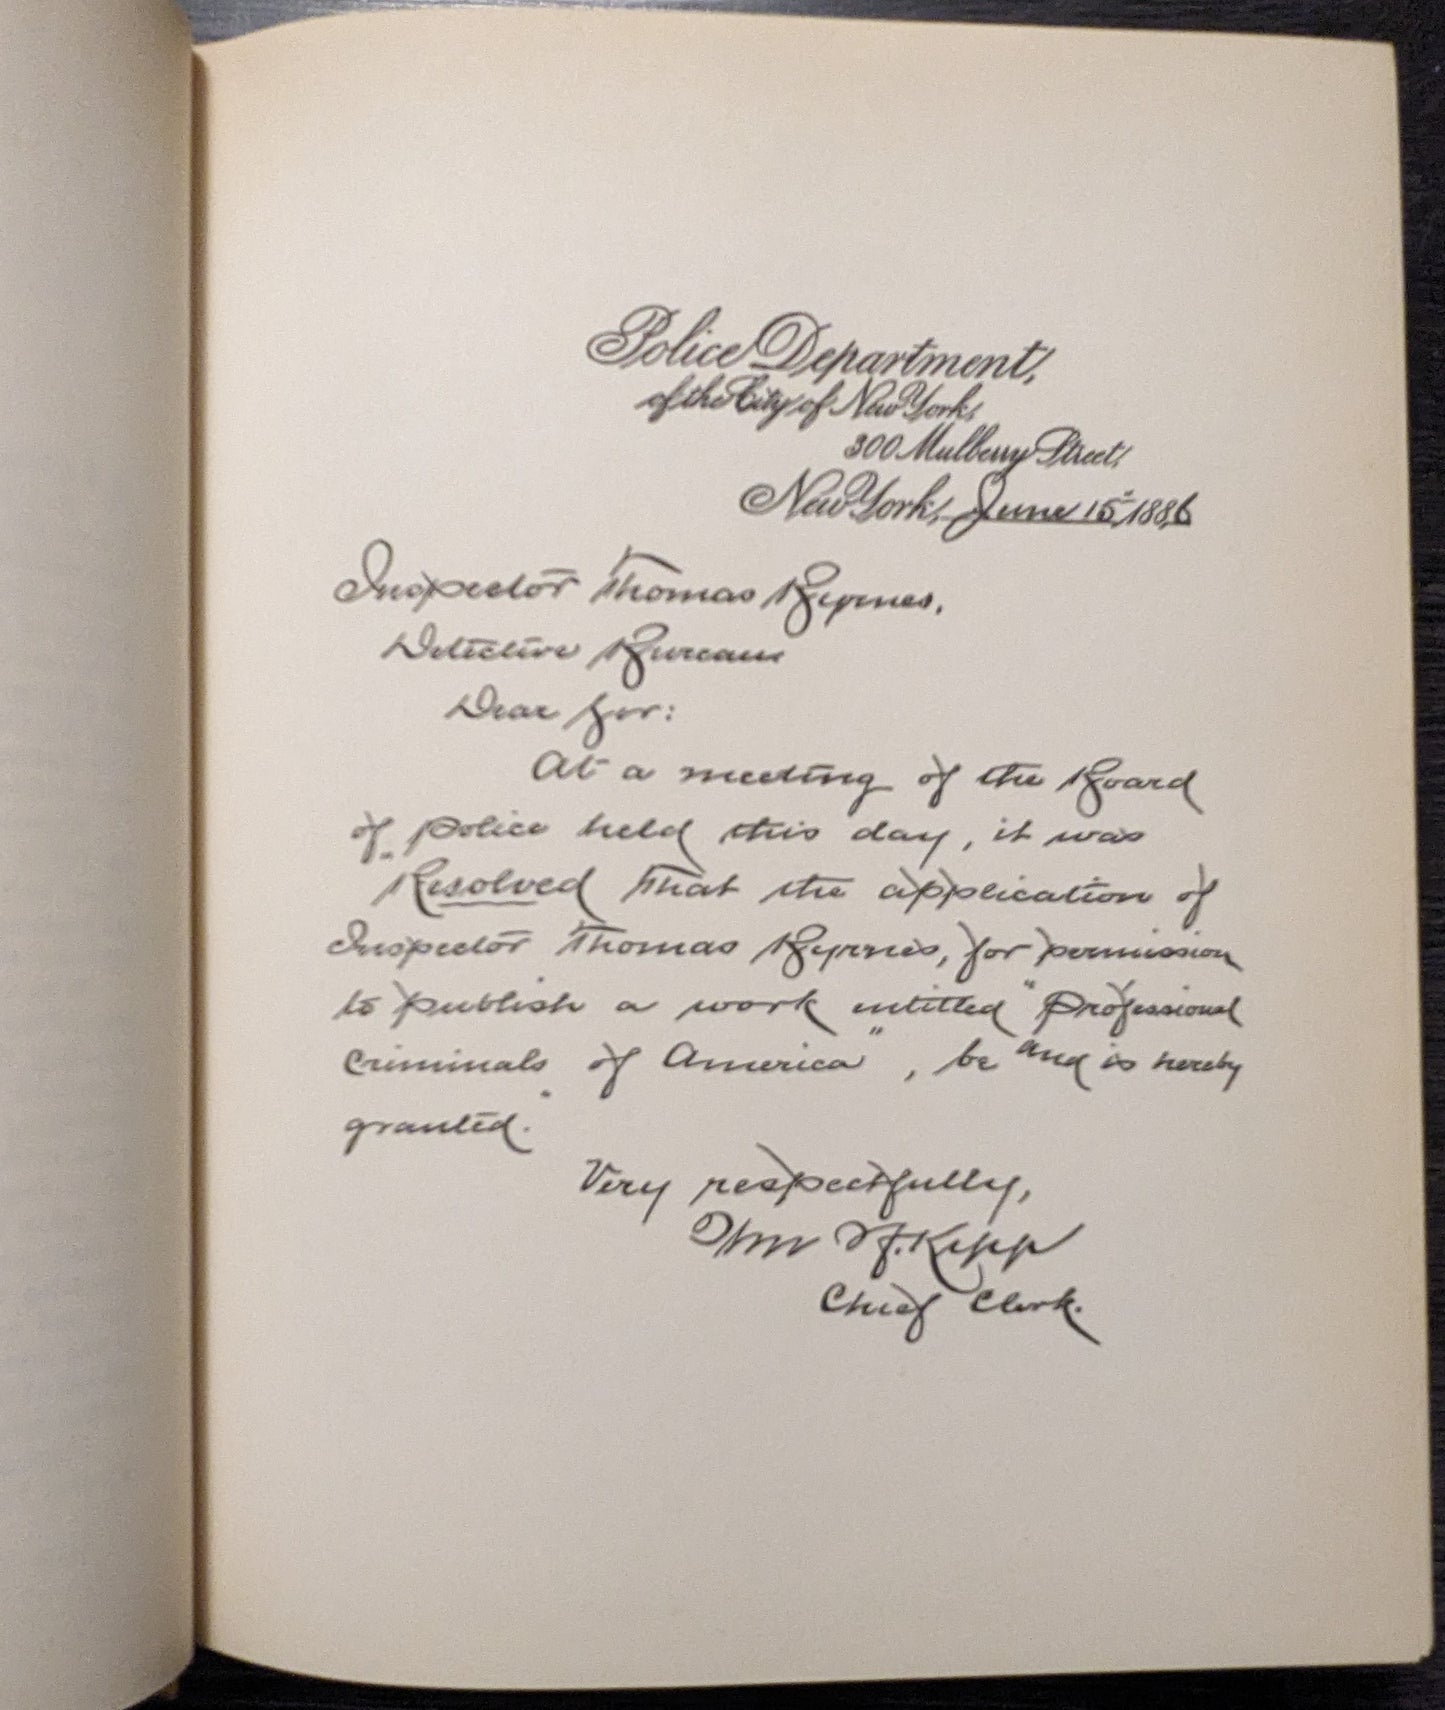 Police Department,
of the City of New York,
300 Mulberry Street,
New York, June 15, 1886
Inspector Thomas Byrnes,
Detective Bureau
Dear Sir:
At a meeting of the Board
of police held this day, it was
"Resolved That the application of
Inspector Thomas Byrnes, for permission
to publish a work entitled "Professional
Criminals of America", be and is hereby
granted."
Very respectfully,
Wm H. Kipp
Chief Clerk.